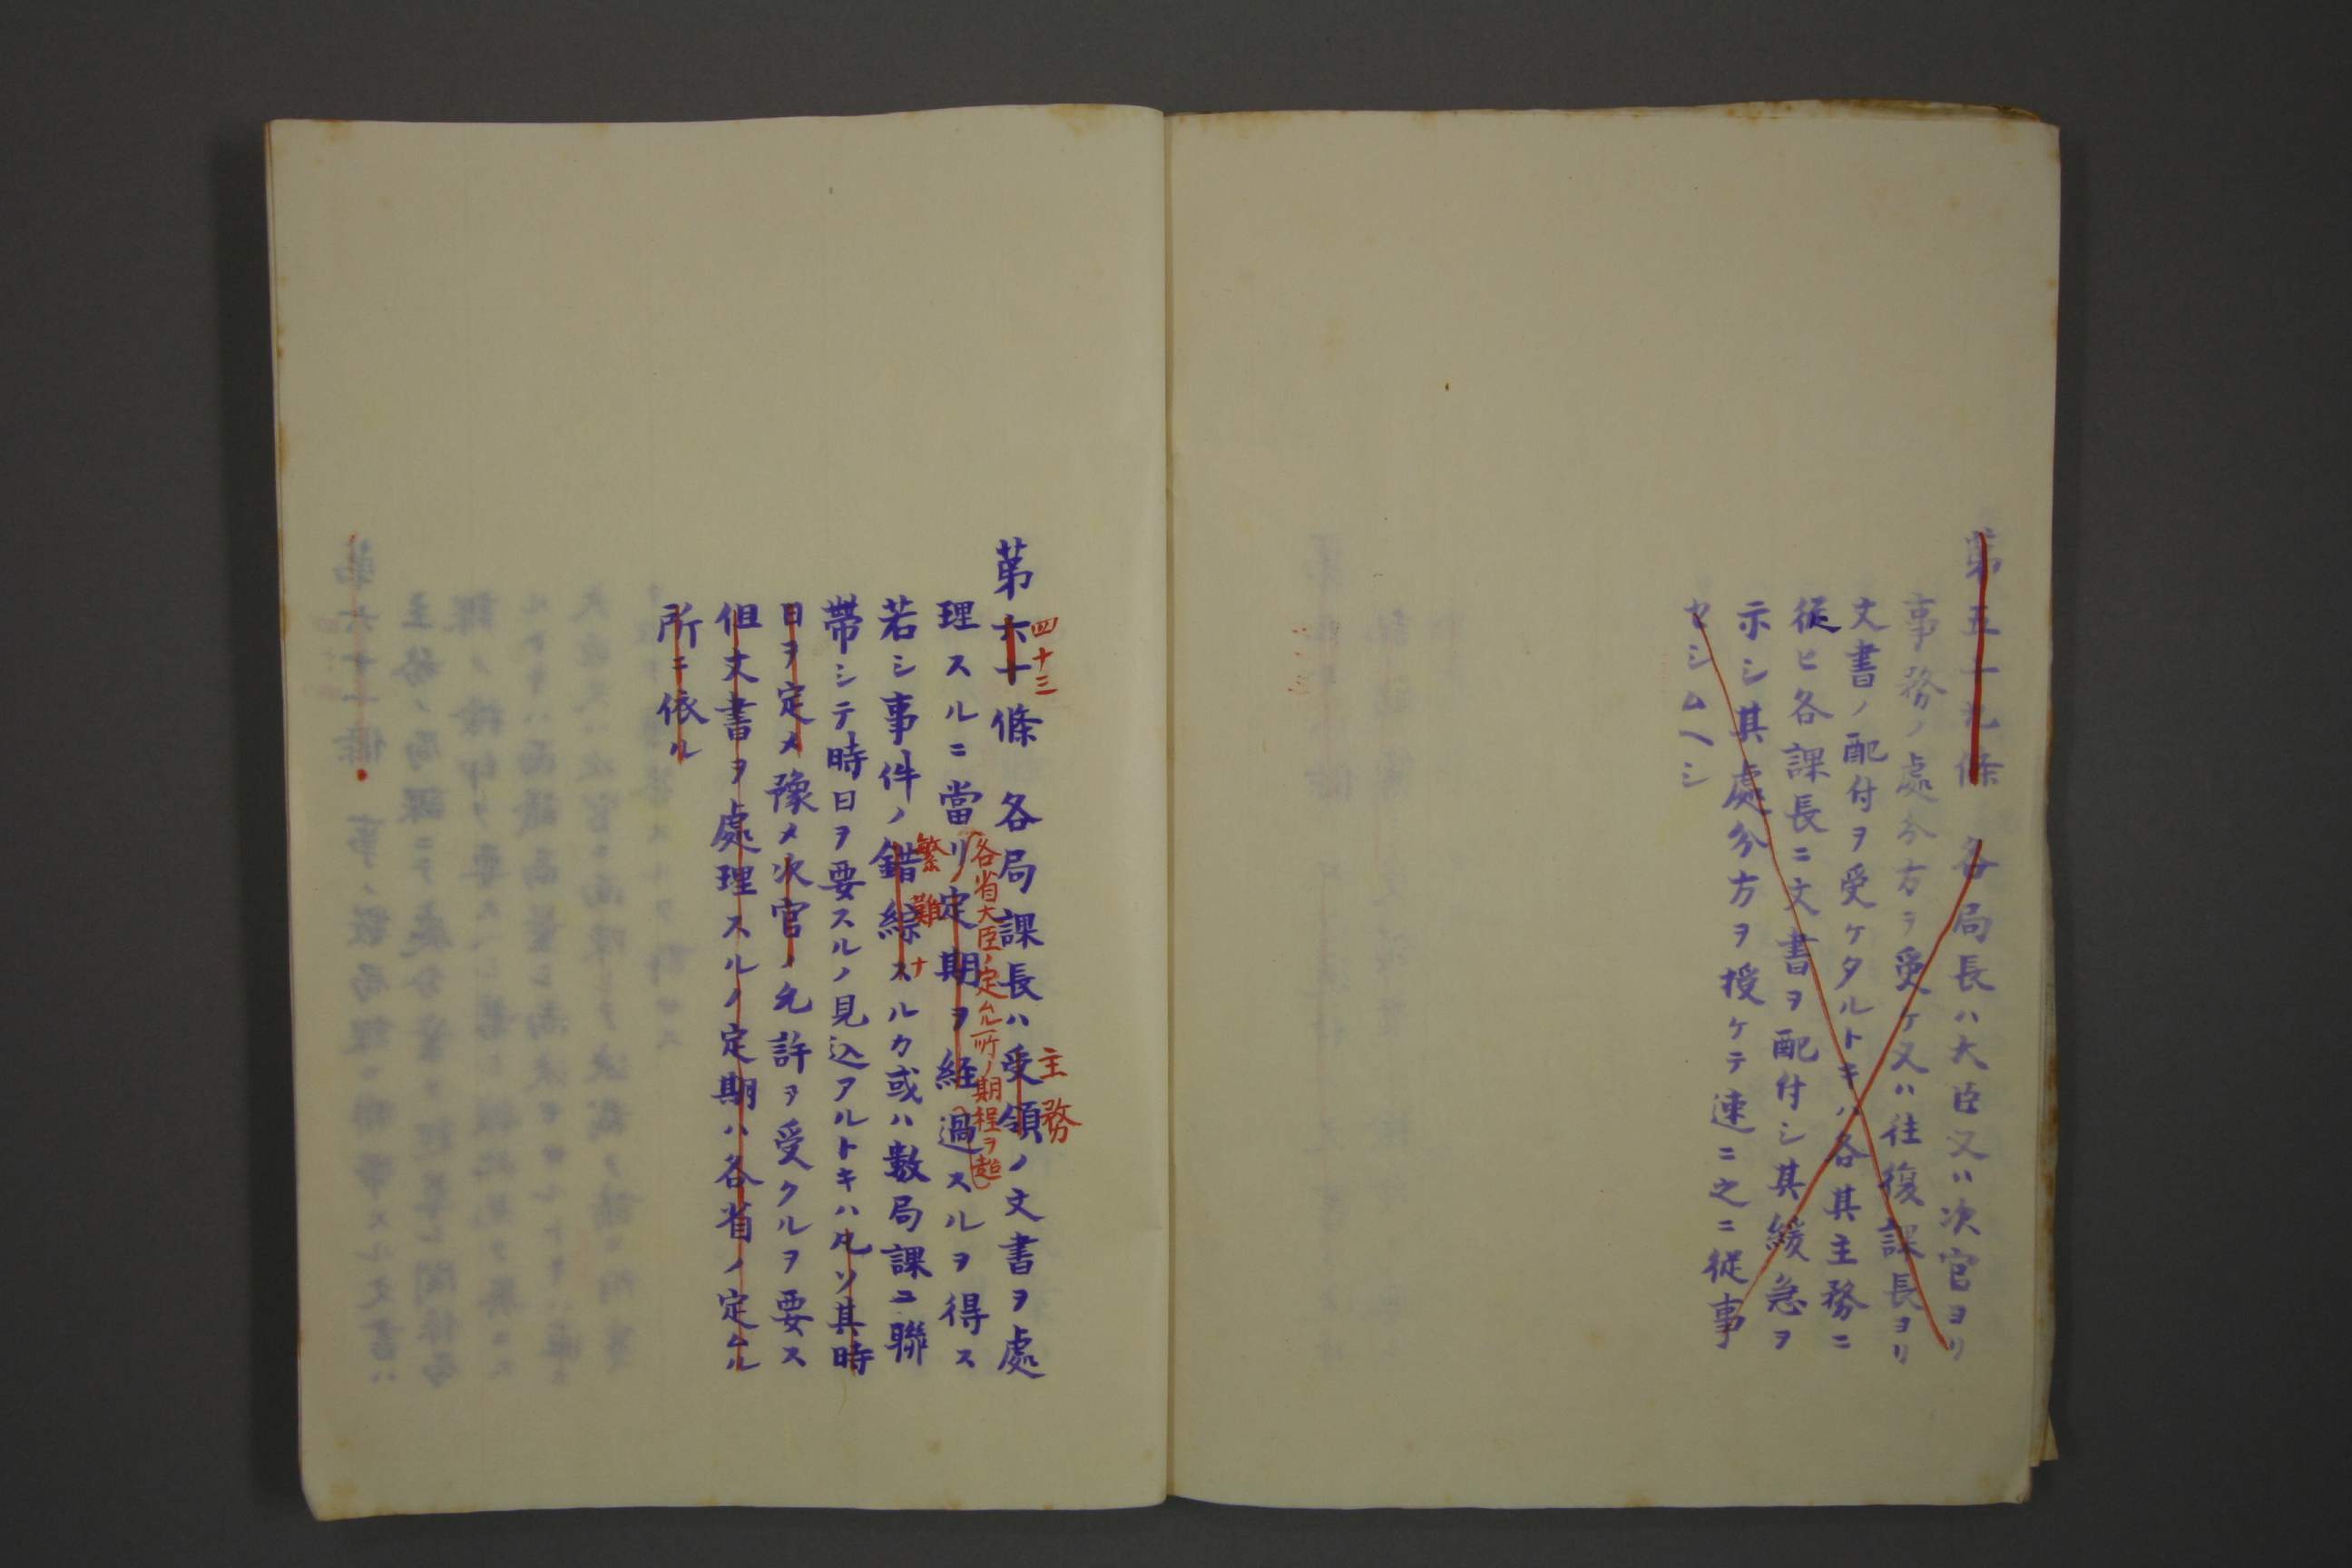 第五十九條 各局長ハ大臣又ハ次官ヨリ
事務ノ處分方ヲ受ケ又ハ往復課長ヨリ
文書ノ配付ヲ受ケタルトキハ各其主務ニ
従ヒ各課長ニ文書ヲ配付シ其緩急ヲ
示シ其處分方ヲ授ケテ速ニ之ニ従事
セシムヘシ
四十三
主務
第六十條 各局課長ハ受領ノ文書ヲ處
各省大臣ノ定ムル所ノ期程ヲ超
理スルニ當リ定期ヲ経過スルヲ得ス
繁難ナ
若シ事件ノ錯綜スルカ或ハ數局課ニ聯
帶シテ時日ヲ要スルノ見込アルトキハ凡ソ其時
日ヲ定メ豫メ次官ノ允許ヲ受クルヲ要ス
但文書ヲ處理スルノ定期ハ各省ノ定ムル
所ニ依ル